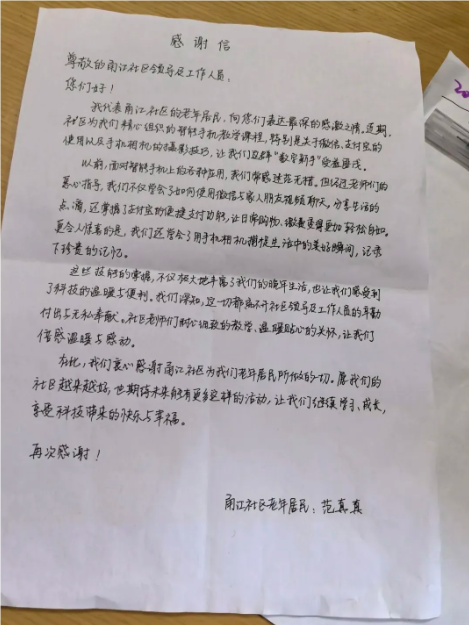 感谢信
尊敬的甬江社区领导及工作人员：
您们好！
我代表甬江社区的老年居民，向您们表达最深的感激之情。近期，
社区为我们精心组织的智能手机教学课程，特别是关于微信、支付宝的
使用以及手机相机的摄影技巧，让我们这群“数字新手”受益匪浅。
以前，面对智能手机上的各种应用，我们常感迷茫无措。但经过老师们的
悉心指导，我们不仅学会了如何使用微信与家人朋友视频聊天、分享生活的
点滴，还掌握了支付宝的便捷支付功能，让日常购物、缴费变得更加轻松自如。
更令人惊喜的是，我们还学会了用手机相机捕捉生活中的美好瞬间，记录
下珍贵的记忆。
这些技能的掌握，不仅极大地丰富了我们的晚年生活，也让我们感受到
了科技的温暖与便利。我们深知，这一切都离不开社区领导及工作人员的辛勤
付出与无私奉献。社区老师们耐心细致的教学、温暖贴心的关怀，让我们
倍感温暖与感动。
在此，我们衷心感谢甬江社区为我们老年居民所做的一切。愿我们的
社区越来越好，也期待未来能有更多这样的活动，让我们继续学习、成长，
享受科技带来的快乐与幸福。
再次感谢！
甬江社区老年居民：范真真